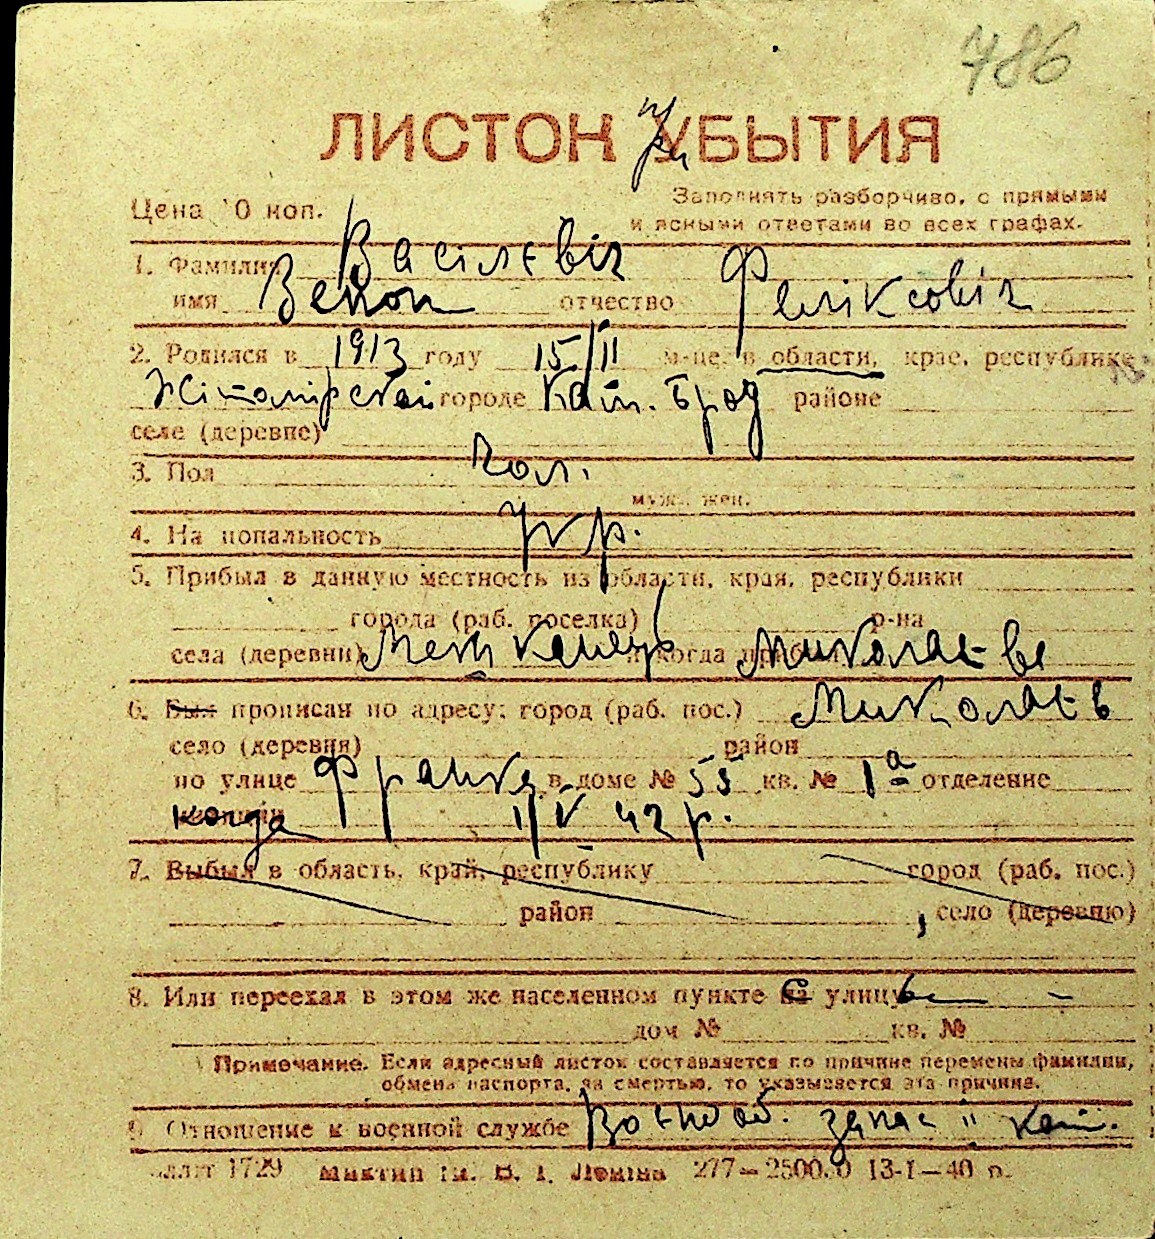 786
ЛИСТОК УБЫТИЯ
При
Цена 10 коп.
Заполнять разборчиво, с прямыми
и ясными ответами во всех графах.
1. Фамилия Василєвіч
имя Зенон отчество Феліксовіч
2. Родился в 1913 году 15/II м-це, в области, крае, республике
Житомірской городе Кам. Брод районе
селе (деревне)
3. Пол чол.
муж., жен.
4. Национальность укр.
5. Прибыл в данную местность из области, края, республики
города (раб. поселка) р-на
села (деревни) Мешканець и когда прибыл Миколаєва
6. Был прописан по адресу: город (раб. пос.) Миколаєв
село (деревня) район
по улице Франка в доме № 55 кв. № 1а отделение
когда 1/V 42 р.
7. Выбыл в область, край, республику город (раб. пос.)
район , село (деревню)
8. Или переехал в этом же населенном пункте на улицу
дом № кв. №
Примечание. Если адресный листок составляется по причине перемены фамилии,
обмена паспорта, за смертью, то указывается эта причина.
9. Отношение к военной службе Воєнооб. запас II кат.
1729 им. В. І. Леніна 277—2500.0 13-I—40 р.